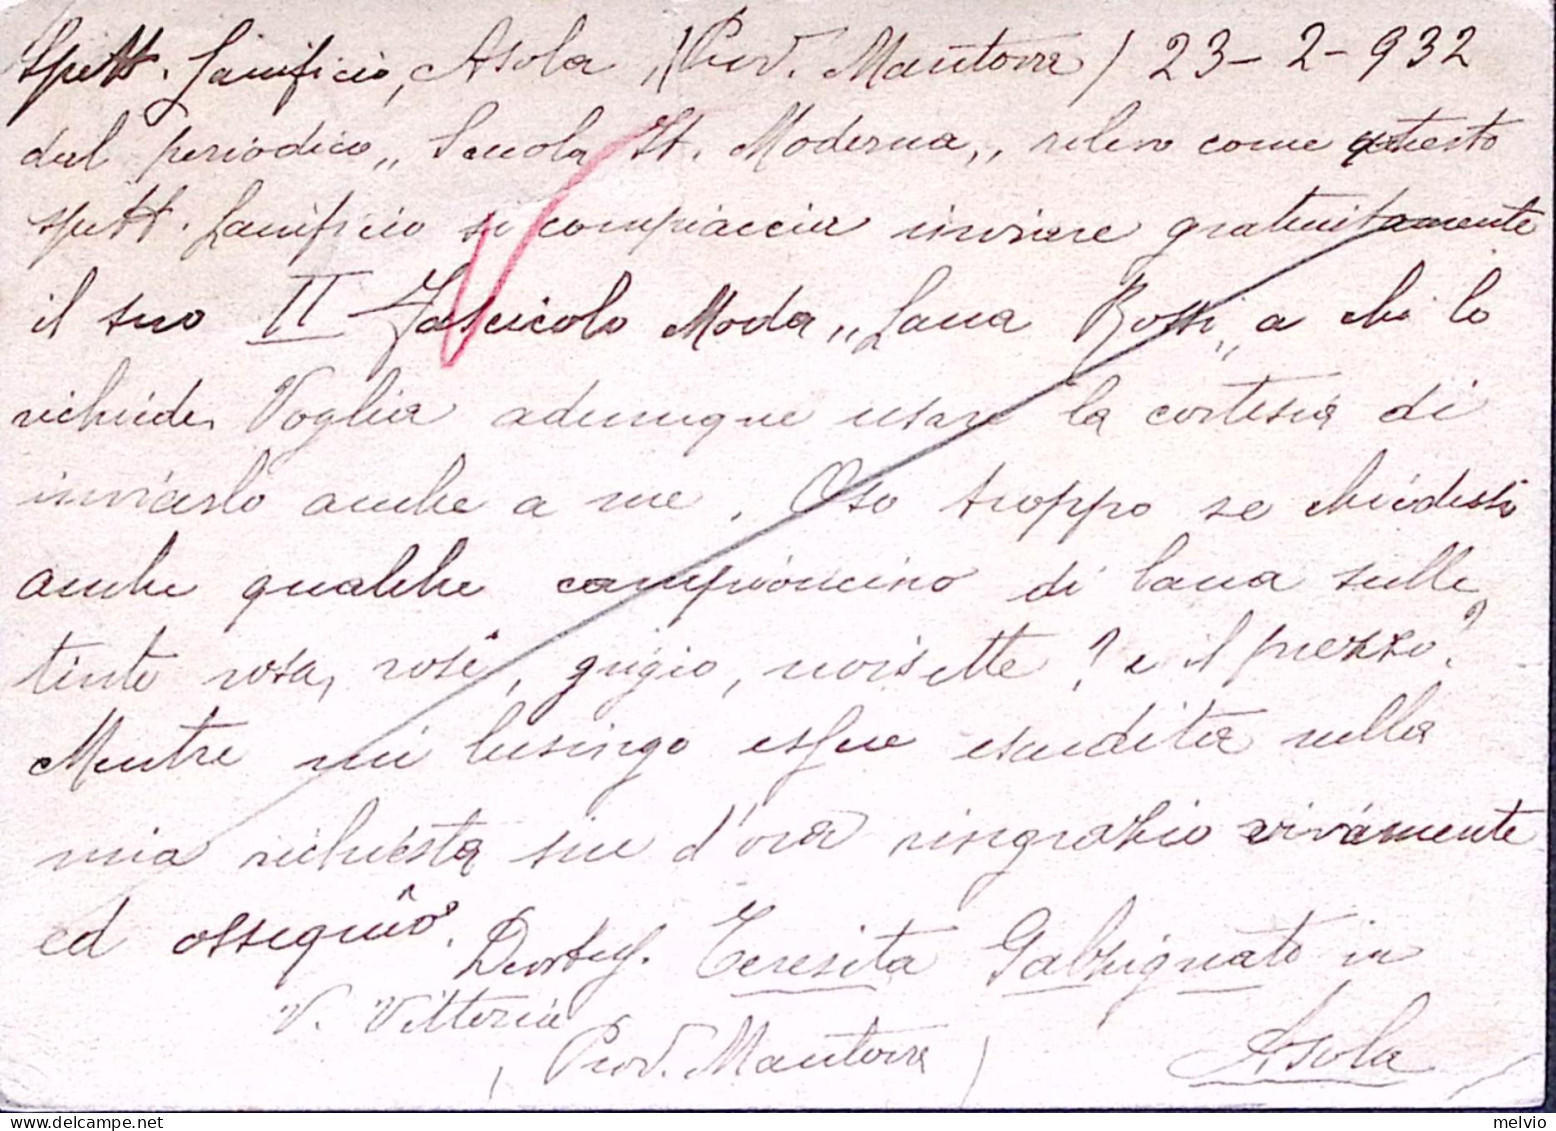 Spett. Lanificio, Asola (Prov. Mantova) 23-2-932
dal periodico „Scuola It. Moderna„ rilevo come questo
spett. Lanificio si compiaccia inviare gratuitamente
il suo II Fascicolo Moda „Lana Rossi„ a chi lo
richiede. Voglia adunque usare la cortesia di
inviarlo anche a me. Oso troppo se chiedessi
anche qualche campioncino di lana sulle
tinte rosa, rosé, grigio, noisette? e il prezzo?
Mentre mi lusingo esser esaudita nella
mia richiesta sin d'ora ringrazio vivamente
ed ossequio.
Teresita Galzignato in
V. Vittoria Asola
(Prov. Mantova)
melvio